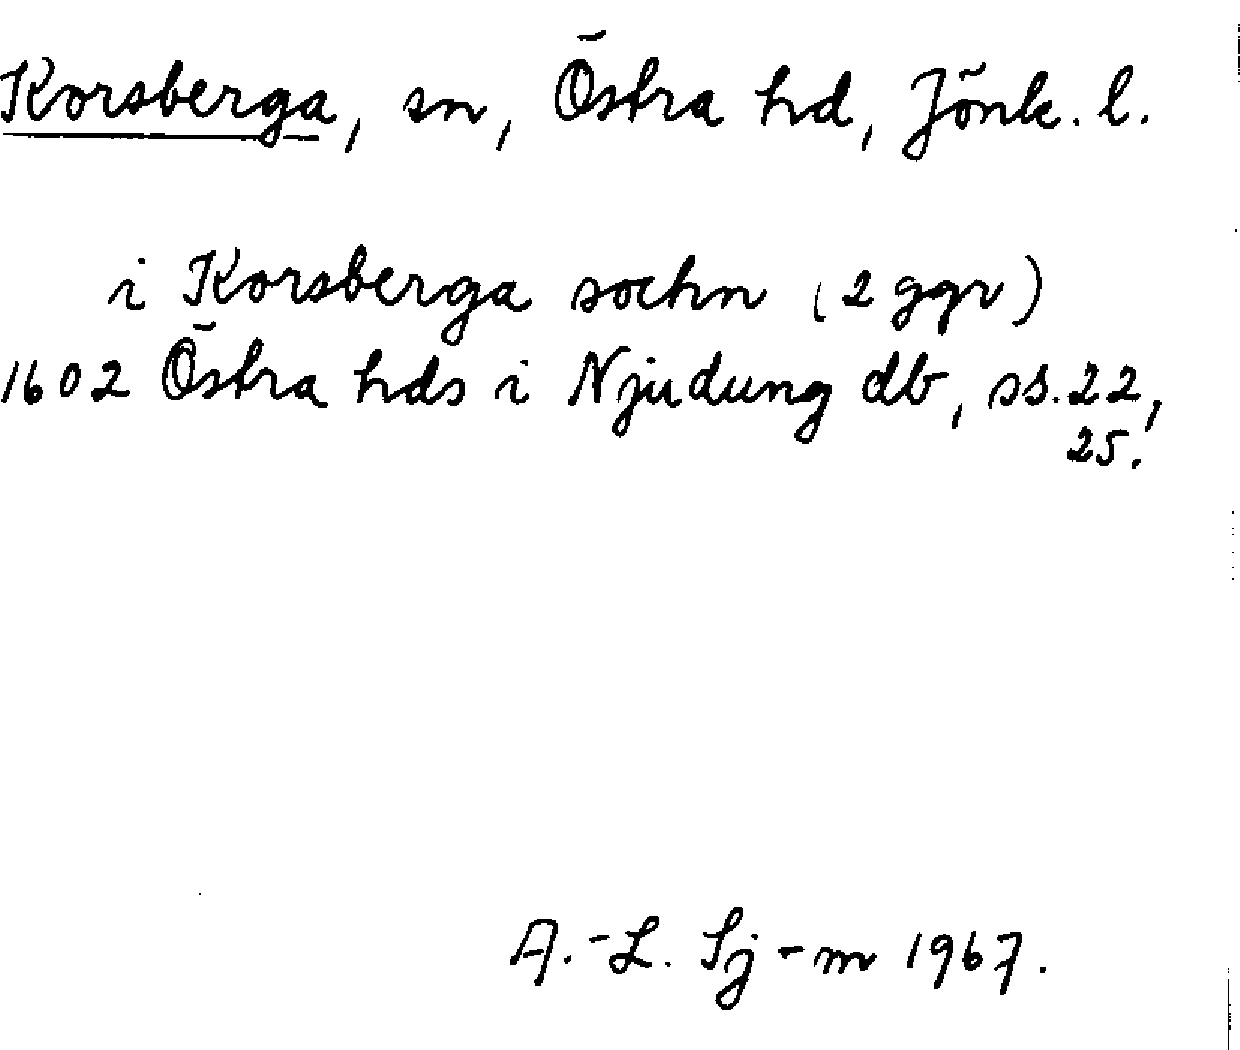 Korsberga, sn, Östra hd, Jönk. l.
i Korsberga sochn (2 ggr)
1602 Östra hds i Njudung db, ss. 22,
25.
A.-L. Sj-m 1967.